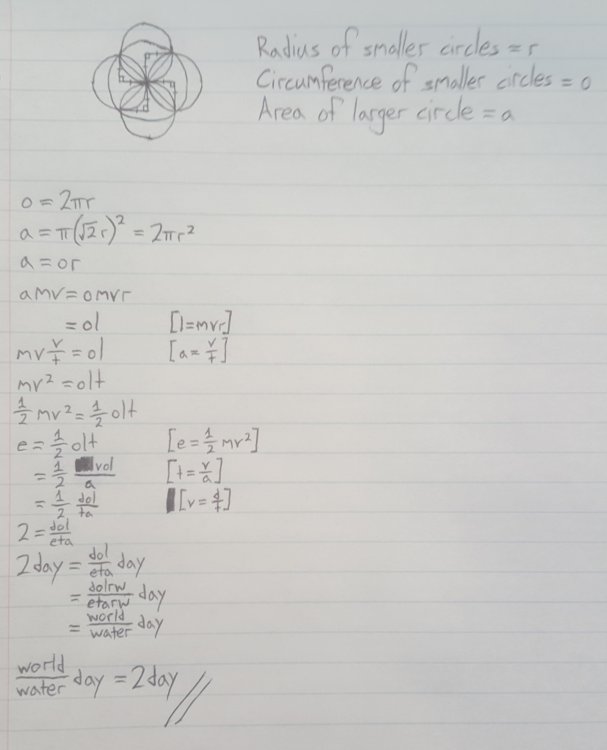 Radius of smaller circles = r
Circumference of smaller circles = o
Area of larger circle = a
o = 2πr
a = π(√2 r)² = 2πr²
a = or
amv = omvr
= ol [l = mvr]
mv v/t = ol [a = v/t]
mv² = olt
1/2 mv² = 1/2 olt
e = 1/2 olt [e = 1/2 mv²]
= 1/2 vol/a [t = v/a]
= 1/2 dol/ta [v = d/t]
2 = dol/eta
2day = dol/eta day
= dolrw/etarw day
= world/water day
world/water day = 2day //